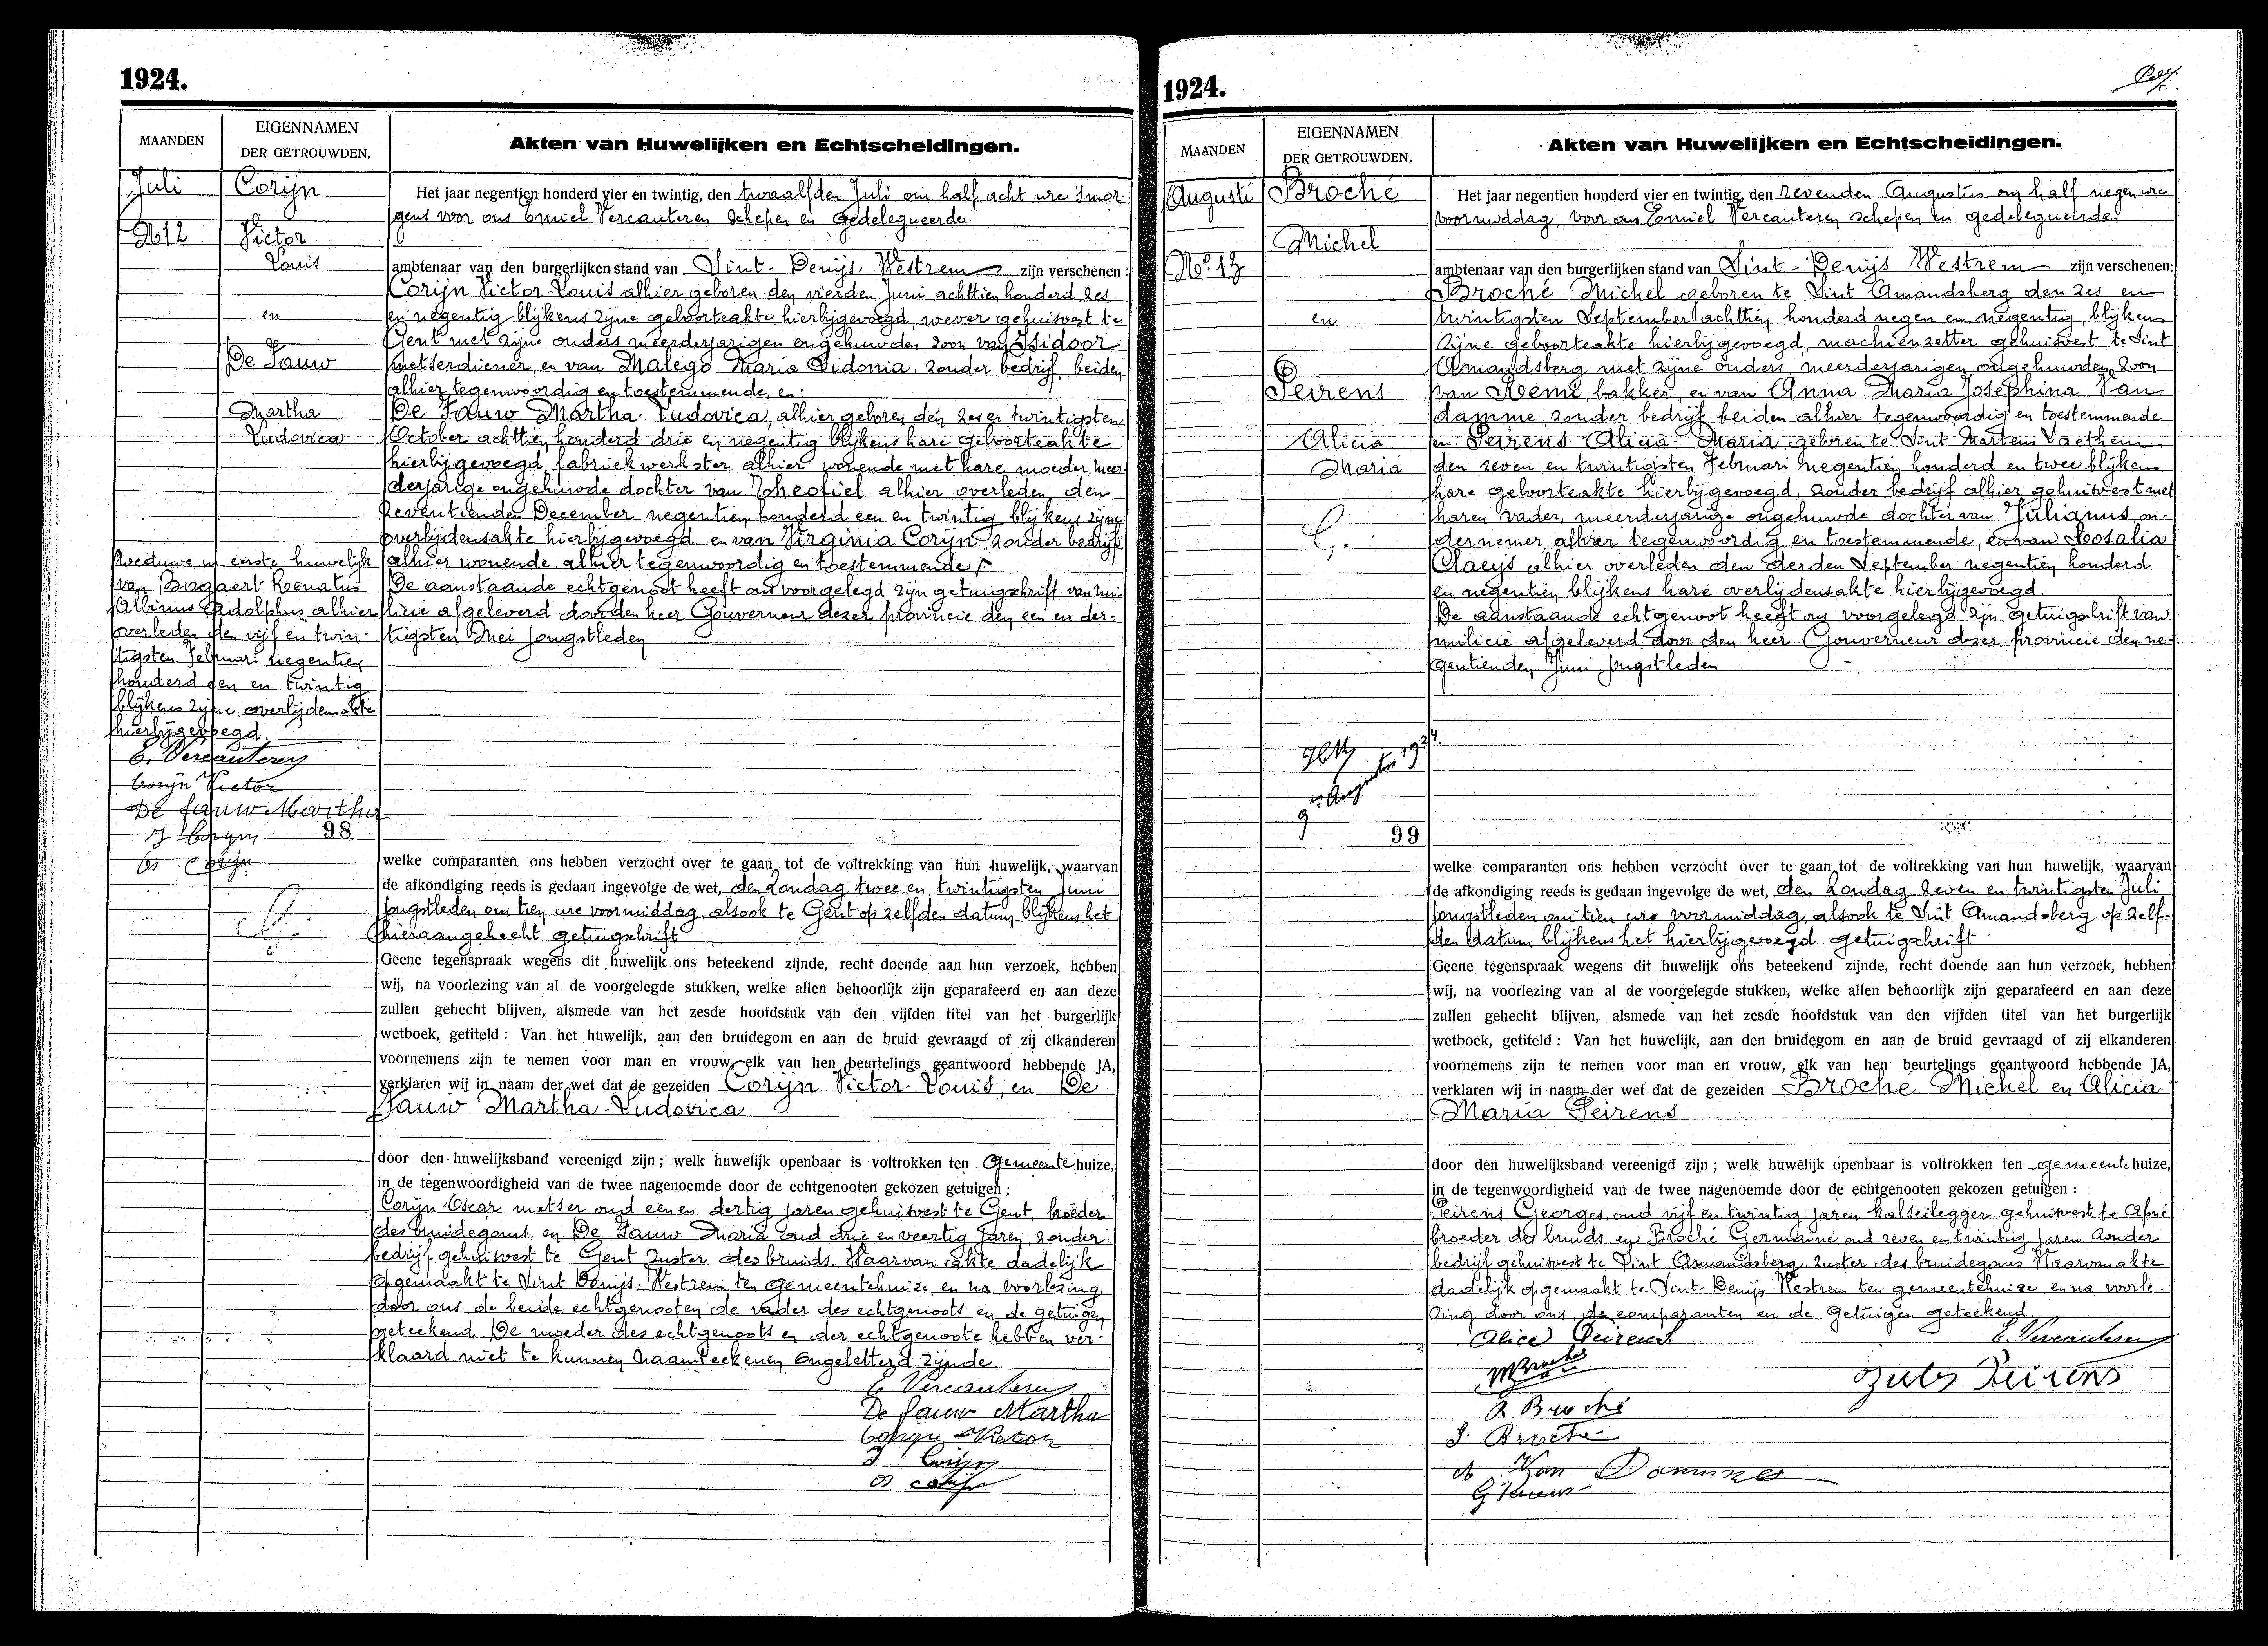 1924.
MAANDEN
EIGENNAMEN
DER GETROUWDEN.
Akten van Huwelijken en Echtscheidingen.
Juli
No 12
Corijn
Victor
Louis
en
De Fauw
Martha
Ludovica
Het jaar negentien honderd vier en twintig, den twaalfden Juli om half acht ure 's mor-
gens voor ons Emiel Vercauteren schepen en gedelegueerde
ambtenaar van den burgerlijken stand van Sint-Denijs-Westrem zijn verschenen:
Corijn Victor-Louis alhier geboren den vierden Juni achttien honderd zes
en negentig blijkens zijne geboorteakte hierbijgevoegd, wever gehuisvest te
Gent met zijne ouders meerderjarigen ongehuwden zoon van Isidoor
metserdiener, en van Malego Maria Sidonia, zonder bedrijf, beiden
alhier tegenwoordig en toestemmende, en:
De Fauw Martha-Ludovica, alhier geboren den zes en twintigsten
October achttien honderd drie en negentig blijkens hare geboorteakte
hierbijgevoegd, fabriekwerkster alhier wonende met hare moeder meer-
derjarige ongehuwde dochter van Theofiel alhier overleden den
zeventienden December negentien honderd een en twintig blijkens zijne
overlijdensakte hierbijgevoegd en van Virginia Corijn zonder bedrijf
alhier wonende, alhier tegenwoordig en toestemmende
De aanstaande echtgenoot heeft ons voorgelegd zijn getuigschrift van mi-
licie afgeleverd door den heer Gouverneur dezer provincie den een en der-
tigsten Mei jongstleden
Weduwe in eerste huwelijk
van Bogaert Renatus
Albinus Adolphus alhier
overleden den vijf en twin-
tigsten Februari negentien
honderd een en twintig
blijkens zijne overlijdensakte
hierbijgevoegd
E. Vercauteren
Corijn Victor
De fauw Martha
J Corijn
Os Corijn
98
welke comparanten ons hebben verzocht over te gaan tot de voltrekking van hun huwelijk, waarvan
de afkondiging reeds is gedaan ingevolge de wet, den Zondag twee en twintigsten Juni
jongstleden om tien ure voormiddag, alsook te Gent op zelfden datum blijkens het
hieraangehecht getuigschrift
Geene tegenspraak wegens dit huwelijk ons beteekend zijnde, recht doende aan hun verzoek, hebben
wij, na voorlezing van al de voorgelegde stukken, welke allen behoorlijk zijn geparafeerd en aan deze
zullen gehecht blijven, alsmede van het zesde hoofdstuk van den vijfden titel van het burgerlijk
wetboek, getiteld: Van het huwelijk, aan den bruidegom en aan de bruid gevraagd of zij elkanderen
voornemens zijn te nemen voor man en vrouw, elk van hen beurtelings geantwoord hebbende JA,
verklaren wij in naam der wet dat de gezeiden Corijn Victor-Louis, en De
Fauw Martha-Ludovica
door den huwelijksband vereenigd zijn; welk huwelijk openbaar is voltrokken ten Gemeentehuize,
in de tegenwoordigheid van de twee nagenoemde door de echtgenooten gekozen getuigen:
Corijn Oscar metser oud een en dertig jaren gehuisvest te Gent, broeder
des bruidegoms, en De Fauw Maria oud drie en veertig jaren, zonder
bedrijf gehuisvest te Gent zuster des bruids. Waarvan akte dadelijk
opgemaakt te Sint Denijs-Westrem ten gemeentehuize, en na voorlezing
door ons de beide echtgenooten de vader des echtgenoots en de getuigen
geteekend De moeder des echtgenoots en der echtgenoote hebben ver-
klaard niet te kunnen naamteekenen ongeletterd zijnde.
E Vercauteren
De fauw Martha
Corijn Victor
J Corijn
Os Corijn
1924.
MAANDEN
EIGENNAMEN
DER GETROUWDEN.
Akten van Huwelijken en Echtscheidingen.
Augusti
No 13
Broché
Michel
en
Peirens
Alicia
Maria
Het jaar negentien honderd vier en twintig, den zevenden Augustus om half negen ure
voormiddag, voor ons Emiel Vercauteren schepen en gedelegueerde
ambtenaar van den burgerlijken stand van Sint-Denijs Westrem zijn verschenen:
Broché Michel geboren te Sint Amandsberg den zes en
twintigsten September achttien honderd negen en negentig, blijkens
zijne geboorteakte hierbijgevoegd, machienzetter gehuisvest te Sint
Amandsberg met zijne ouders, meerderjarigen ongehuwden zoon
van Remi, bakker, en van Anna Maria Josephina Van
damme, zonder bedrijf, beiden alhier tegenwoordig en toestemmende
en: Peirens Alicia-Maria, geboren te Sint Martens Laethem
den zeven en twintigsten Februari negentien honderd en twee blijkens
hare geboorteakte hierbijgevoegd, zonder bedrijf alhier gehuisvest met
haren vader, meerderjarige ongehuwde dochter van Julianus on-
dernemer alhier tegenwoordig en toestemmende, en van Rosalia
Claeys alhier overleden den derden September negentien honderd
en negentien blijkens hare overlijdensakte hierbijgevoegd.
De aanstaande echtgenoot heeft ons voorgelegd zijn getuigschrift van
milicie afgeleverd door den heer Gouverneur dezer provincie den ne-
gentienden Juni jongstleden
9n Augustus 1924.
99
welke comparanten ons hebben verzocht over te gaan tot de voltrekking van hun huwelijk, waarvan
de afkondiging reeds is gedaan ingevolge de wet, den Zondag zeven en twintigsten Juli
jongstleden om tien ure voormiddag, alsook te Sint Amandsberg op zelf-
den datum blijkens het hierbijgevoegd getuigschrift
Geene tegenspraak wegens dit huwelijk ons beteekend zijnde, recht doende aan hun verzoek, hebben
wij, na voorlezing van al de voorgelegde stukken, welke allen behoorlijk zijn geparafeerd en aan deze
zullen gehecht blijven, alsmede van het zesde hoofdstuk van den vijfden titel van het burgerlijk
wetboek, getiteld: Van het huwelijk, aan den bruidegom en aan de bruid gevraagd of zij elkanderen
voornemens zijn te nemen voor man en vrouw, elk van hen beurtelings geantwoord hebbende JA,
verklaren wij in naam der wet dat de gezeiden Broché Michel en Alicia
Maria Peirens
door den huwelijksband vereenigd zijn; welk huwelijk openbaar is voltrokken ten gemeentehuize,
in de tegenwoordigheid van de twee nagenoemde door de echtgenooten gekozen getuigen:
Peirens Georges, oud vijf en twintig jaren kalseilegger gehuisvest te Afsné
broeder des bruids, en Broché Germaine oud zeven en twintig jaren zonder
bedrijf gehuisvest te Sint Amandsberg, zuster des bruidegoms. Waarvan akte
dadelijk opgemaakt te Sint-Denijs Westrem ten gemeentehuize, en na voorle-
zing door ons, de comparanten en de Getuigen geteekend.
Alice Peirens
E. Vercauteren
MBroché
Jules Peirens
R Broché
G. Broché
A Van Damme
G Peirens